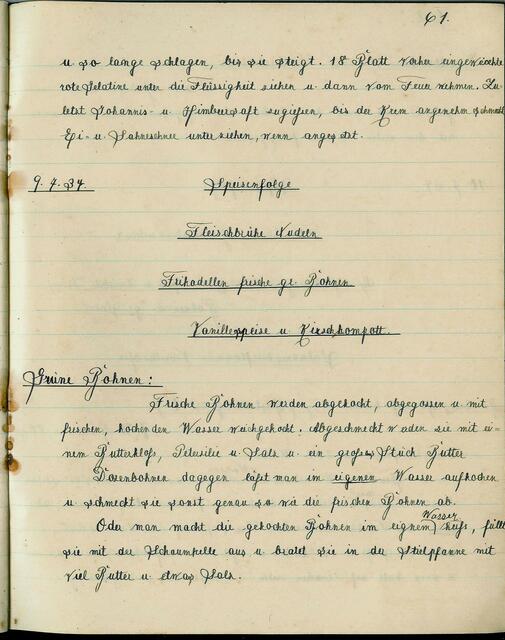 61.
u. so lange schlagen, bis sie steigt. 18 Blatt vorher eingeweichte
rote Gelatine unter die Flüssigkeit ziehen u. dann vom Feuer nehmen. Zu-
letzt Johannis- u. Himbeersaft zugießen, bis der Krem angenehm schmeckt
Ei- u. Sahneschnee unterziehen, wenn
9. 7. 34. Speisenfolge
Fleischbrühe Nudeln
Frikadellen frische gr. Bohnen
Vanillespeise u. Kirschkompott.
Grüne Bohnen:
Frische Bohnen werden abgekocht, abgegossen u. mit
frischen, kochenden Wasser weichgekocht. Abgeschmeckt werden sie mit ei-
nem Butterkloß, Petersilie u. Salz u. ein großes Stück Butter
Dosenbohnen dagegen läßt man im eigenen Wasser aufkochen
u. schmeckt sie sonst genau so wie die frischen Bohnen ab.
Wasser
Oder man macht die gekochten Bohnen im eignem heiß, füllt
sie mit der Schaumkelle aus u. bratet sie in der Stielpfanne mit
viel Butter u. etwas Salz.